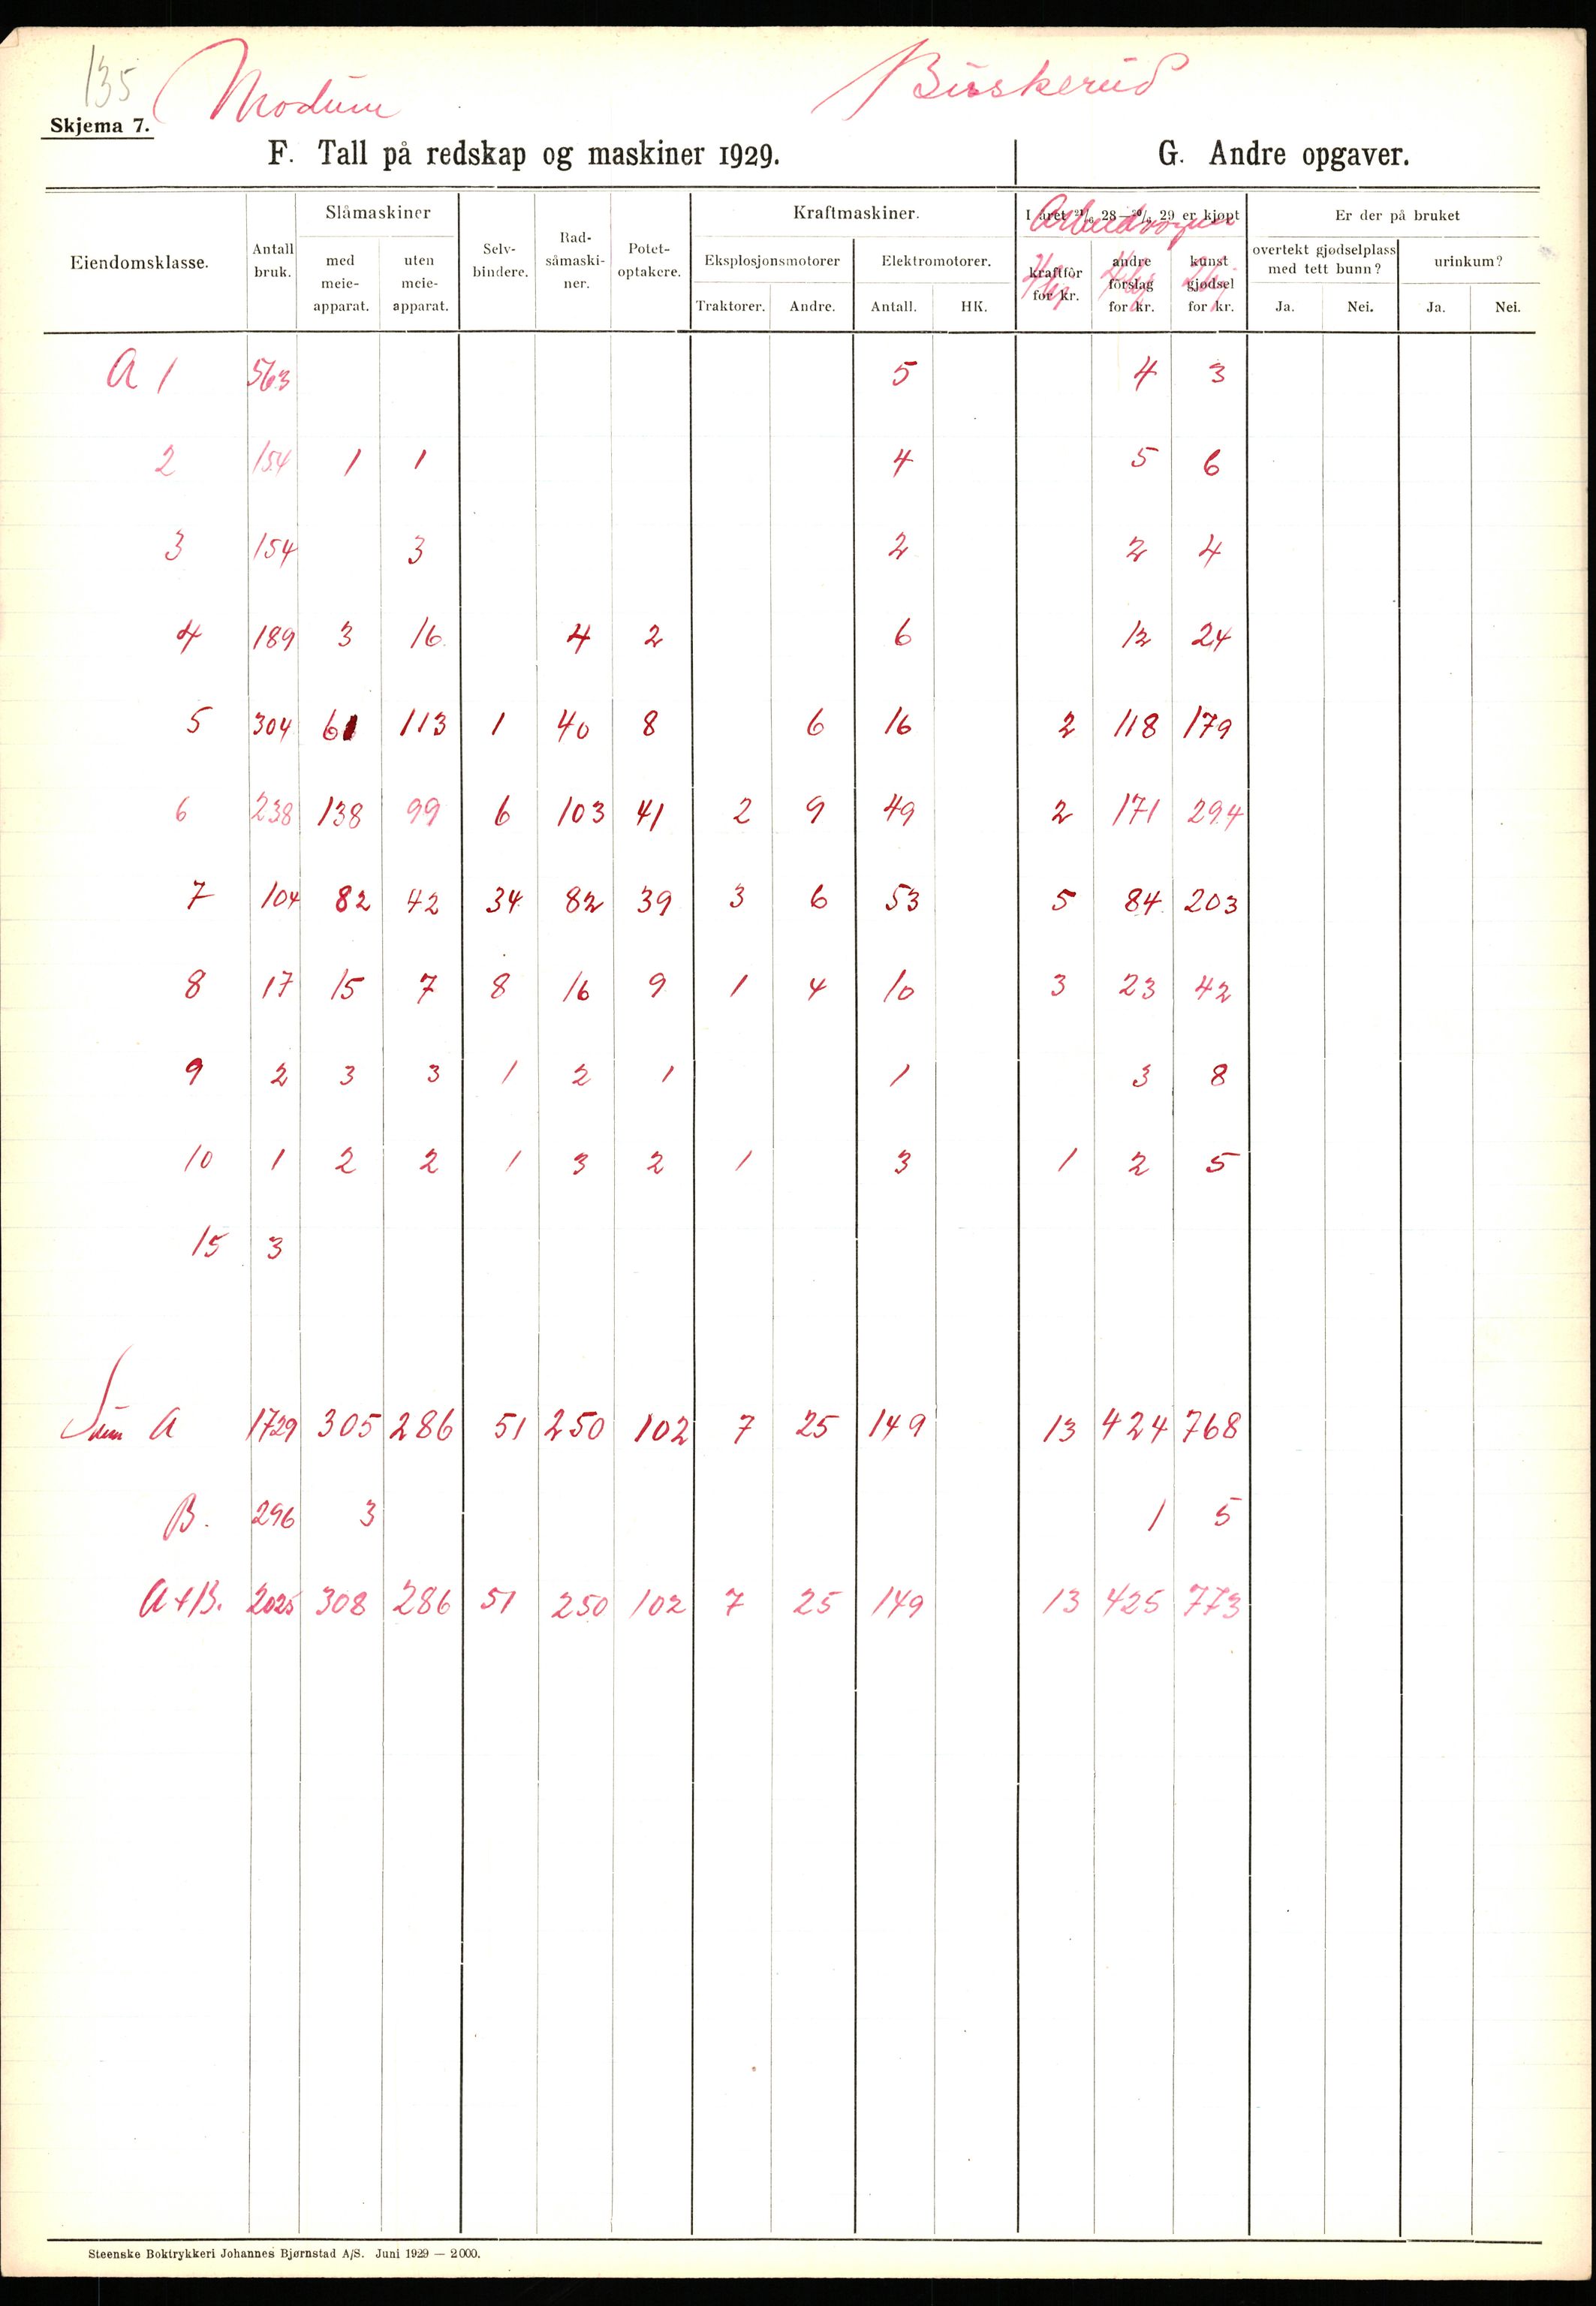 135 Modum Buskerud
Skjema 7.
F. Tall på redskap og maskiner 1929. G. Andre opgaver.
Eiendomsklasse. Antall bruk. Slåmaskiner Selv-bindere. Rad-såmaski-ner. Potet-optakere. Kraftmaskiner. I året 21/6 28—20/6 29 er kjøpt Er der på bruket
Arbeidsvogner
med meie-apparat. uten meie-apparat. Eksplosjonsmotorer Elektromotorer. kraftfôr for kr. andre fôrslag for kr. kunst gjødsel for kr. overtekt gjødselplass med tett bunn? urinkum?
Traktorer. Andre. Antall. HK. Ja. Nei. Ja. Nei.
A 1 563 5 4 3
2 154 1 1 4 5 6
3 154 3 2 2 4
4 189 3 16 4 2 6 12 24
5 304 61 113 1 40 8 6 16 2 118 179
6 238 138 99 6 103 41 2 9 49 2 171 294
7 104 82 42 34 82 39 3 6 53 5 84 203
8 17 15 7 8 16 9 1 4 10 3 23 42
9 2 3 3 1 2 1 1 3 8
10 1 2 2 1 3 2 1 3 1 2 5
15 3
Sum A 1729 305 286 51 250 102 7 25 149 13 424 768
B. 296 3 1 5
A+B. 2025 308 286 51 250 102 7 25 149 13 425 773
Steenske Boktrykkeri Johannes Bjørnstad A/S. Juni 1929 — 2000.